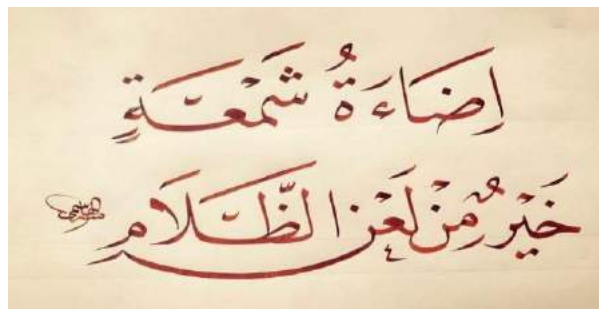 اِضَاءَةُ شَمْعَةٍ
خَيْرٌ مِنْ لَعْنِ الظَّلَامِ